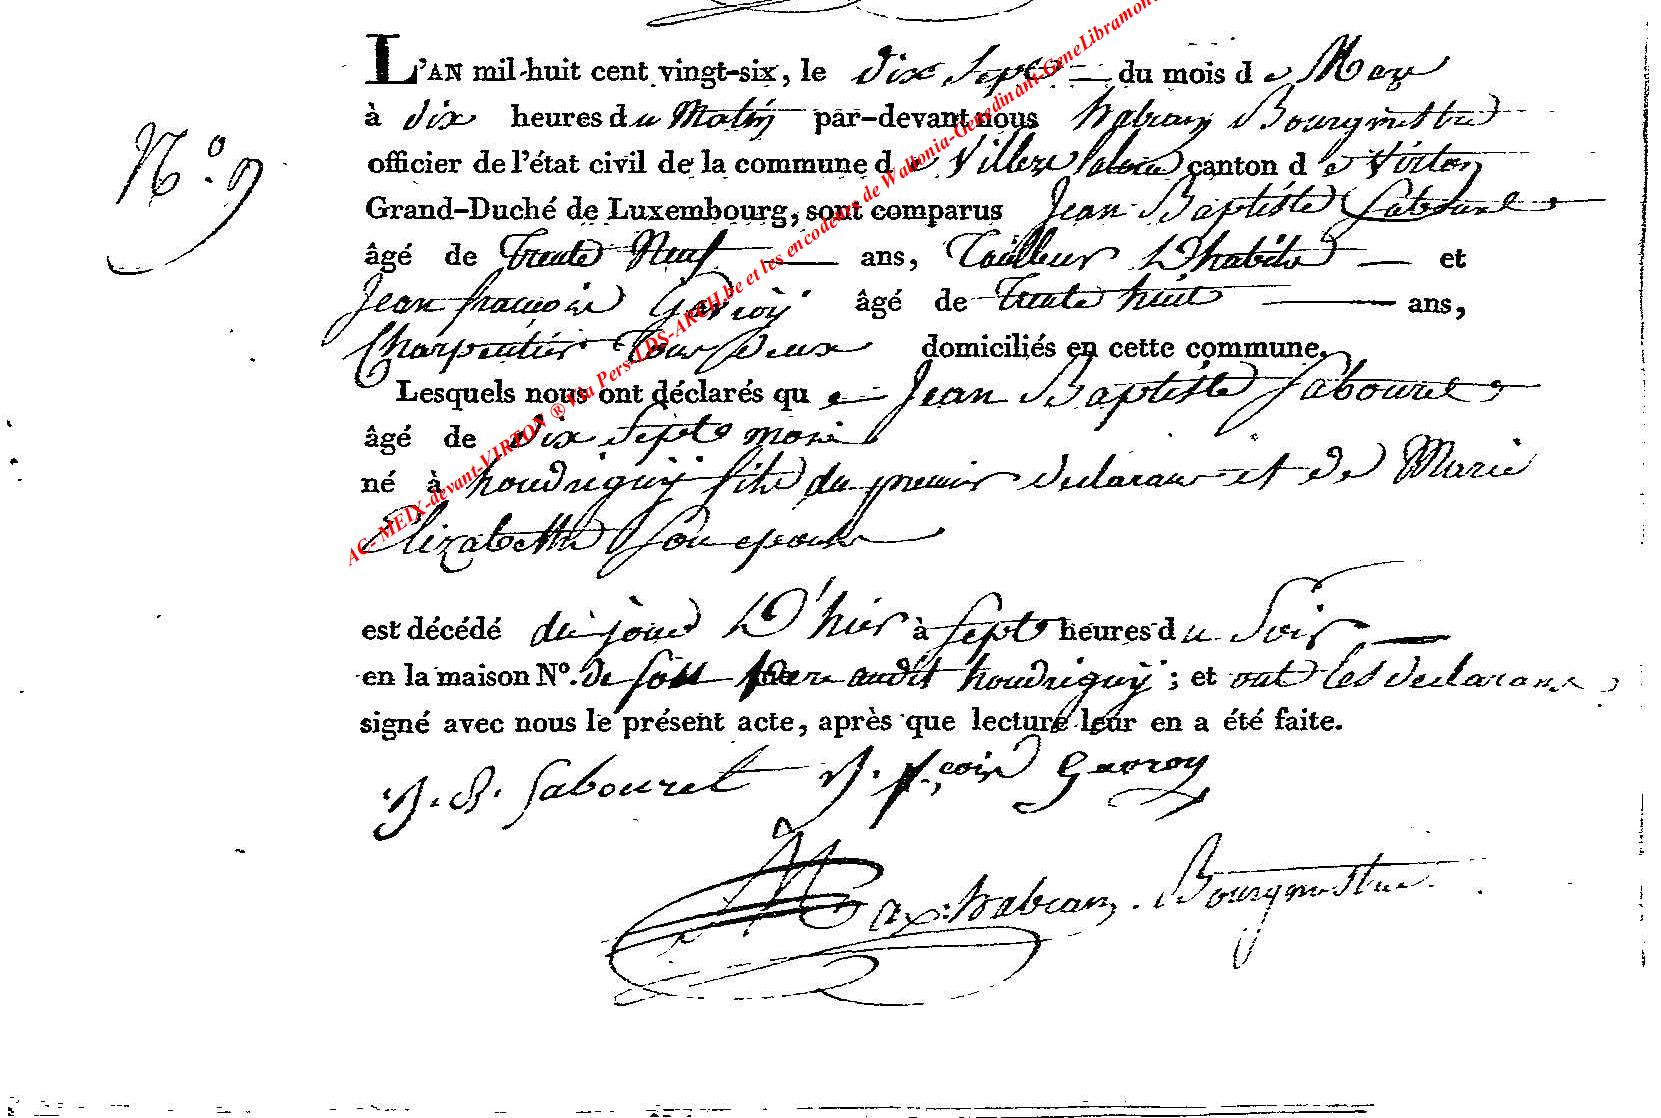 L'AN mil-huit cent vingt-six, le dix Sept du mois de May
à dix heures du Matin par-devant nous habran Bourgmestre
N.º 9
officier de l'état civil de la commune de Villers laloue canton de Virton
Grand-Duché de Luxembourg, sont comparus Jean Baptiste Sabouret
âgé de Trente Neuf ans, Tailleur D'habits et
Jean françois Gavroÿ âgé de Trente huit ans,
Charpentier Tous deux domiciliés en cette commune.
Lesquels nous ont déclarés que Jean Baptiste Sabouret
âgé de dix Sept mois
né à houdrigny fils du premier declarant et de Marie
Elizabethe Son epouse
est décédé du jour D'hier à Sept heures du Soir
en la maison Nº. de son pere audit houdrigny ; et ont les declarans
signé avec nous le présent acte, après que lecture leur en a été faite.
J. B. Sabouret J. fçois Gavroy
Max: habran. Bourgmestre
AC- MEIX-devant-VIRTON ® Via Pers-LDS-ARCH.be et les encodeurs de Wallonia-Genedinant-GeneLibramont